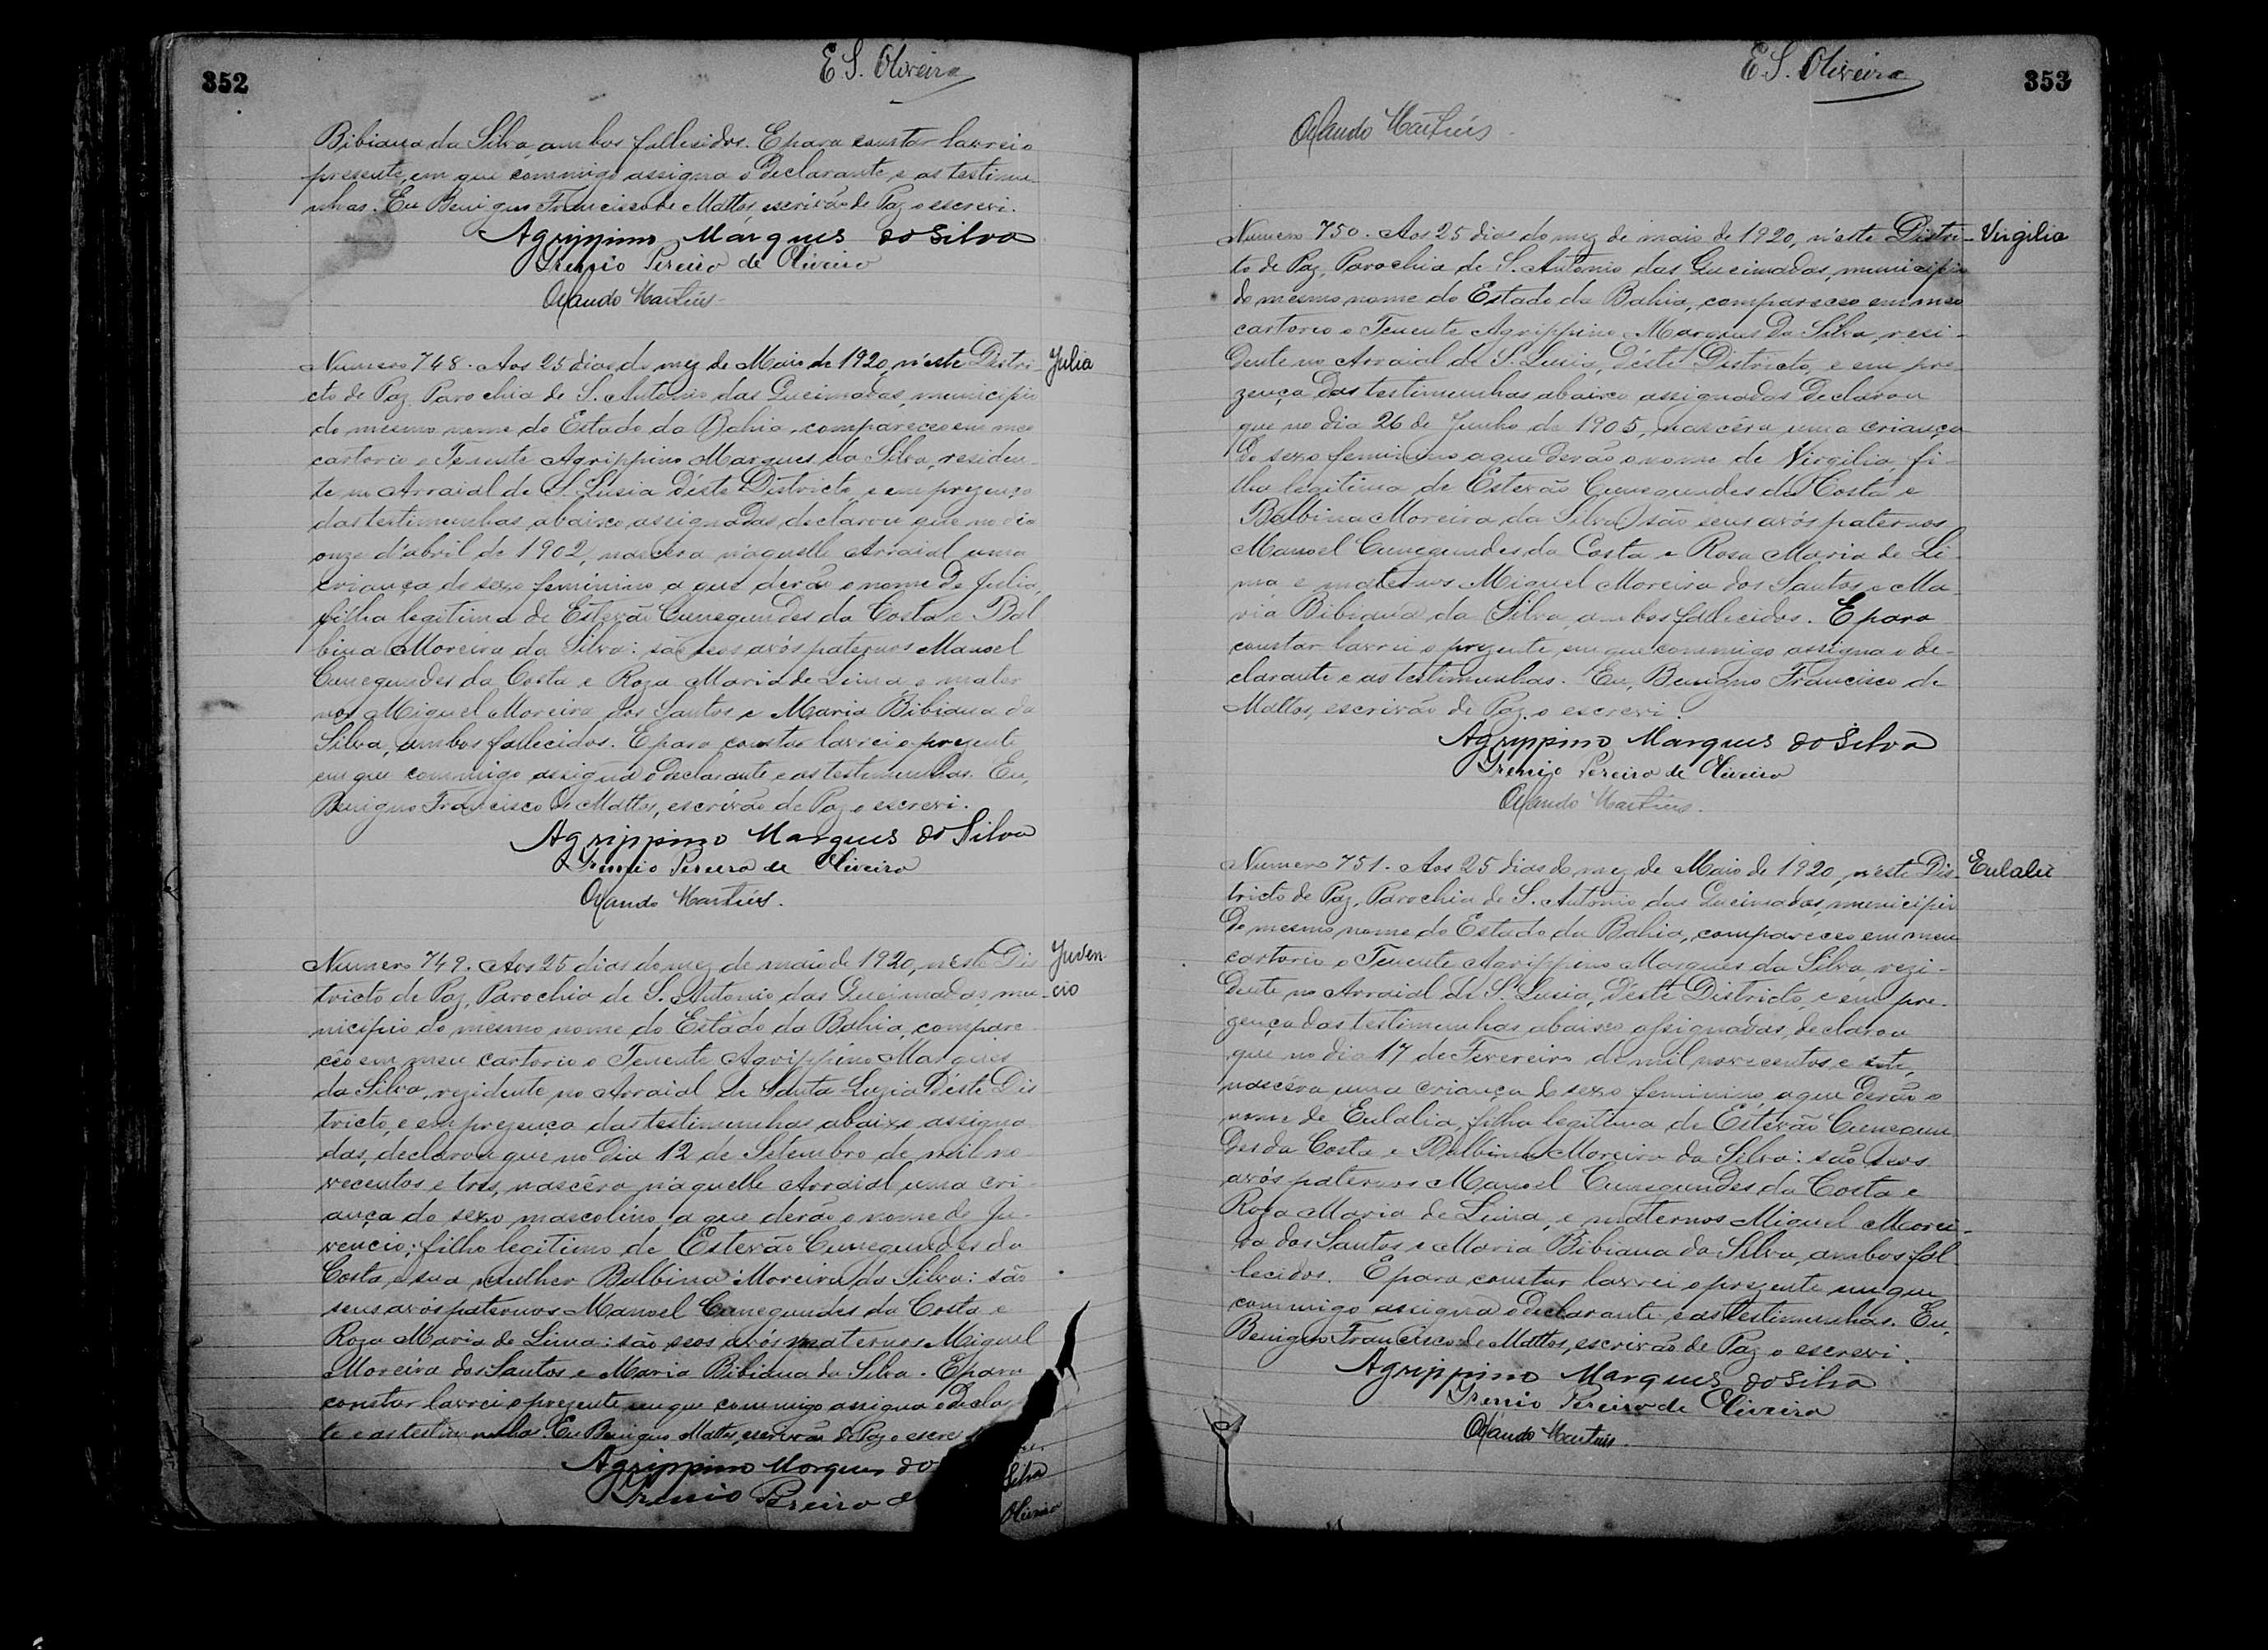 352
E S. Oliveira
Bibiana da Silva, ambos fallecidos. E para constar lavrei o
presente, em que commigo assigna o declarante e as testimu-
nhas. Eu Benigno Francisco de Mattos, escrivão de Paz o escrevi.
Agrippino Marques da Silva
Irenio Pereira de Oliveira
Orlando Martins
Numero 748. Aos 25 dias do mez de Maio de 1920, n'este Distri-
Julia
cto de Paz, Parochia de S. Antonio das Queimadas, municipio
do mesmo nome do Estado da Bahia, compareceo em meo
cartorio o Tenente Agrippino Marques da Silva, residen-
te no Arraial de S. Lusia d'este Districto, e em prezença
das testimunhas abaixo assignadas, declarou que no dia
onze d'abril de 1902, nascera n'aquelle Arraial uma
criança do sexo feminino a que derão o nome de Julia,
filha legitima de Estevão Cunegundes da Costa e Bal
bina Moreira da Silva: são seos avós paternos Manoel
Cunegundes da Costa e Roza Maria de Lima e mater
nos Miguel Moreira dos Santos e Maria Bibiana da
Silva, ambos fallecidos. E para constar lavrei o prezente
em que commigo assigna o declarante e as testimunhas. Eu,
Benigno Francisco de Mattos, escrivão de Paz o escrevi.
Agrippino Marques da Silva
Irenio Pereira de Oliveira
Orlando Martins.
Numero 749. Aos 25 dias do mez de maio de 1920, n'este Dis
Juven-
tricto de Paz, Parochia de S. Antonio das Queimadas, mu-
cio
nicipio do mesmo nome do Estado da Bahia, compare
ceo em meu cartorio o Tenente Agrippino Marques
da Silva, rezidente no Arraial de Santa Luzia d'éste Dis
tricto, e em prezença das testimunhas abaixo assigna
das, declarou que no dia 12 de Setembro de mil no
vecentos e tres, nascêra n'aquelle Arraial uma cri-
ança do sexo mascolino, a que derão o nome de Ju-
vencio; filho legitimo de Estevão Cunegundes da
Costa, e sua mulher Balbina Moreira da Silva: são
seus avós paternos Manoel Cunegundes da Costa e
Roza Maria de Lima: são seos avós maternos Miguel
Moreira dos Santos e Maria Bibiana da Silva. E para
constar lavrei o prezente em que commigo assigna o decla
te e as testimunhas. Eu Benigno Mattos, escrivão de Paz o escre
Agrippino Marques da Silva
Irenio Pereira de Oliveira
E. S. Oliveira
353
Orlando Martins.
Numero 750. Aos 25 dias do mez de maio de 1920, n'este Distri-
Virgilia
to de Paz, Parochia de S. Antonio das Queimadas, municipio
do mesmo nome do Estado da Bahia, compareceo em meo
cartorio o Tenente Agrippino Marques da Silva, resi-
dente no Arraial de S. Lusia, d'éste Districto, e em pre
zença das testimunhas abaixo assignadas declarou
que no dia 26 de Junho de 1905, nascêra uma criança
do sexo feminino a que derão o nome de Virgilia, fi-
lha legitima de Estevão Cunegundes da Costa e
Balbina Moreira da Silva; são seus avós paternos
Manoel Cunegundes da Costa e Rosa Maria de Li
ma e maternos Miguel Moreira dos Santos e Ma-
ria Bibiana da Silva, ambos fallecidos. E para
constar lavrei o prezente em que commigo assigna o de-
clarante e as testimunhas. Eu, Benigno Francisco de
Mattos, escrivão de Paz o escrevi.
Agrippino Marques da Silva
Irenio Pereira de Oliveira
Orlando Martins.
Numero 751. Aos 25 dias do mez de Maio de 1920, n'este Dis-
Eulalia
tricto de Paz, Parochia de S. Antonio das Queimadas, municipio
do mesmo nome do Estado da Bahia, compareceo em meu
cartorio o Tenente Agrippino Marques da Silva, rezi-
dente no Arraial de S. Lusia, d'éste Districto, e em pre-
zença das testimunhas abaixo assignadas, declarou
que no dia 17 de Fevereiro de mil novecentos e sete,
nascêra uma criança do sexo feminino, a que derão o
nome de Eulalia, filha legitima de Estevão Cunegun
des da Costa e Balbina Moreira da Silva: são seos
avós paternos Manoel Cunegundes da Costa e
Roza Maria de Lima, e maternos Miguel Morei-
ra dos Santos e Maria Bibiana da Silva, ambos fal
lecidos. E para constar lavrei o prezente em que
commigo assigna o declarante e as testimunhas. Eu,
Benigno Francisco de Mattos, escrivão de Paz o escrevi.
Agrippino Marques da Silva
Irenio Pereira de Oliveira
Orlando Martins.